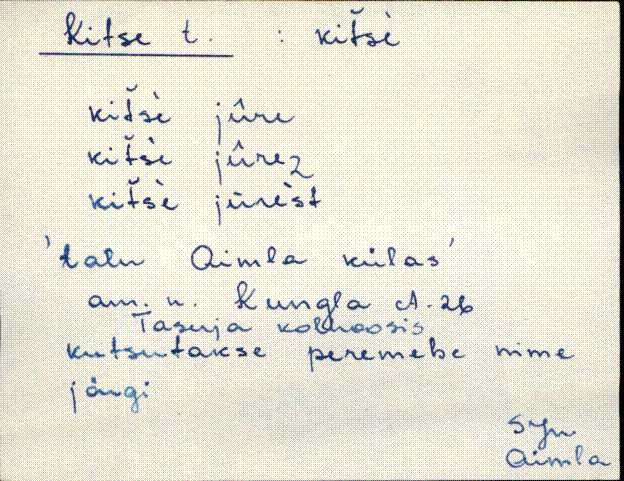 Kitse t. : kiťšè
kiťšè jûre
kiťšè jûrez
kiťšè jūrèst
'talu Aimla külas'
am. n. Kungla A-26
Tasuja kolhoosis
kutsutakse peremehe nime
järgi
Syn
Aimla